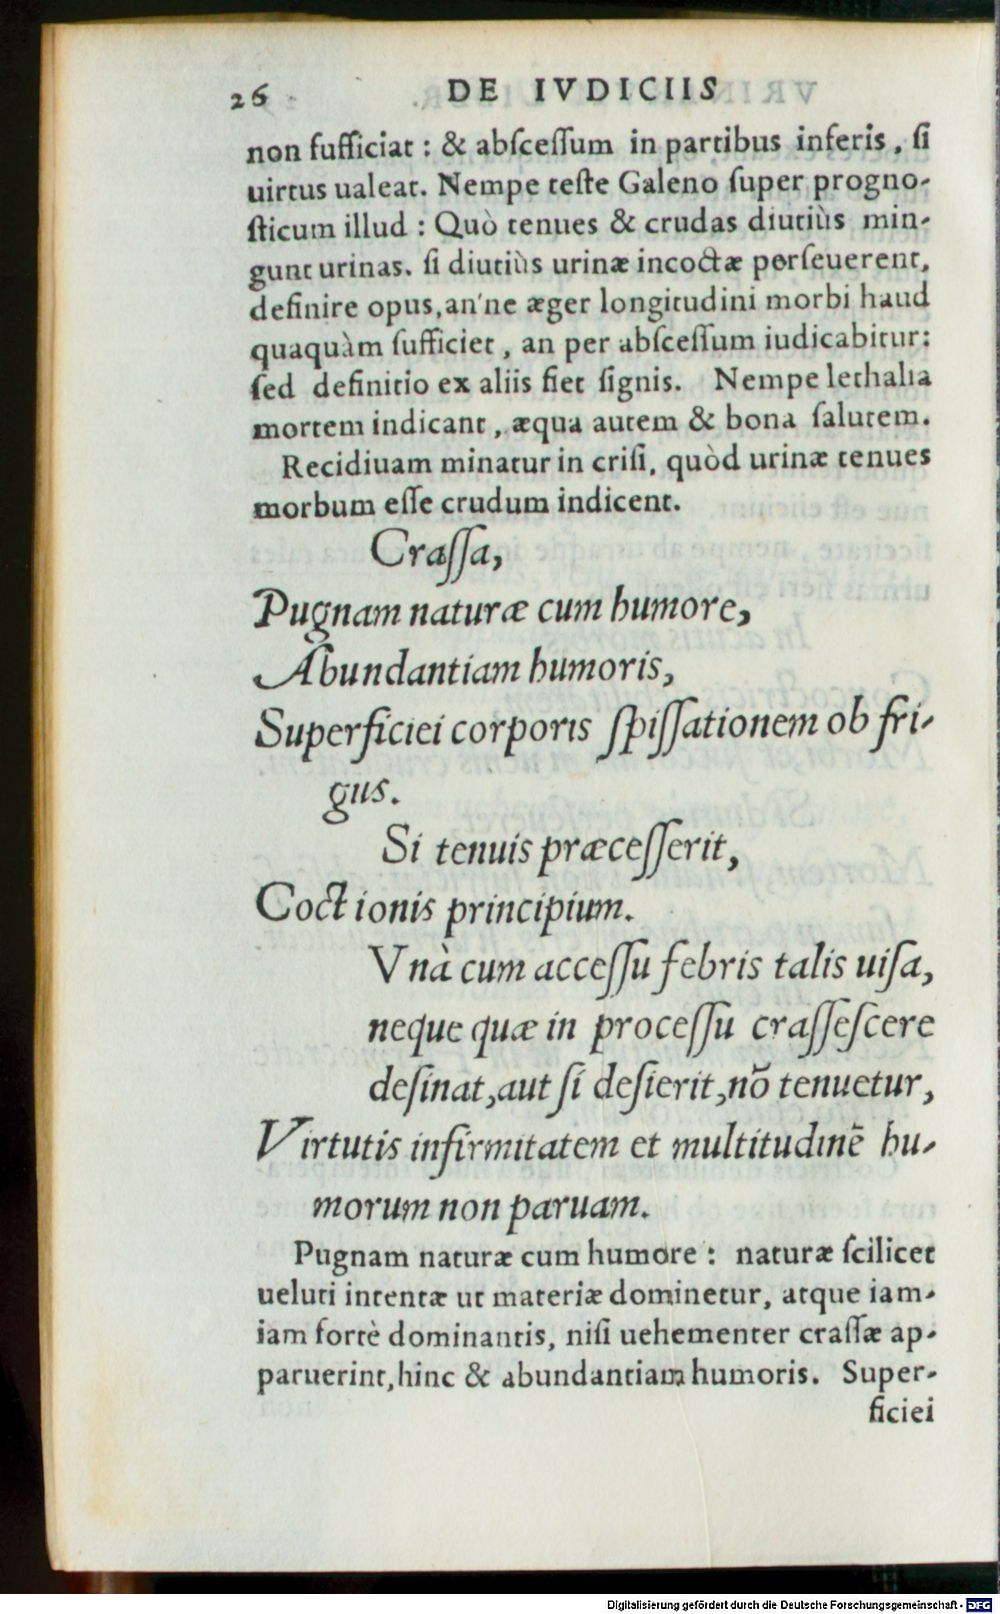 26 DE IVDICIIS
non ſufficiat : & abſceſſum in partibus inferis, ſi
uirtus ualeat. Nempe teſte Galeno ſuper progno-
ſticum illud : Quò tenues & crudas diutiùs min-
gunt urinas. ſi diutiùs urinæ incoctæ perſeuerent,
definire opus, an'ne æger longitudini morbi haud
quaquàm ſufficiet, an per abſceſſum iudicabitur:
ſed definitio ex aliis fiet ſignis. Nempe lethalia
mortem indicant, æqua autem & bona ſalutem.
Recidiuam minatur in criſi, quòd urinæ tenues
morbum eſſe crudum indicent.
Craſſa,
Pugnam naturæ cum humore,
Abundantiam humoris,
Superficiei corporis ſpiſſationem ob fri-
gus.
Si tenuis præceſſerit,
Coctionis principium.
Vnà cum acceſſu febris talis uiſa,
neque quæ in proceſſu craſſeſcere
deſinat, aut ſi deſierit, nõ tenuetur,
Virtutis infirmitatem et multitudinẽ hu-
morum non paruam.
Pugnam naturæ cum humore : naturæ ſcilicet
ueluti intentæ ut materiæ dominetur, atque iam-
iam fortè dominantis, niſi uehementer craſſæ ap-
paruerint, hinc & abundantiam humoris. Super-
ficiei
Digitalisierung gefördert durch die Deutsche Forschungsgemeinschaft - DFG